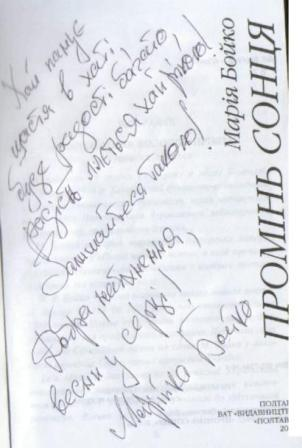 Хай панує
щастя в хаті,
буде радості багато,
Радість ллється хай рікою!
Залишайтеся такою!
Добра, натхнення,
весни у серці!
Марійка Бойко
Марія Бойко
ПРОМІНЬ СОНЦЯ
ПОЛТАВ
ВАТ «ВИДАВНИЦТВ
«ПОЛТАВ
20